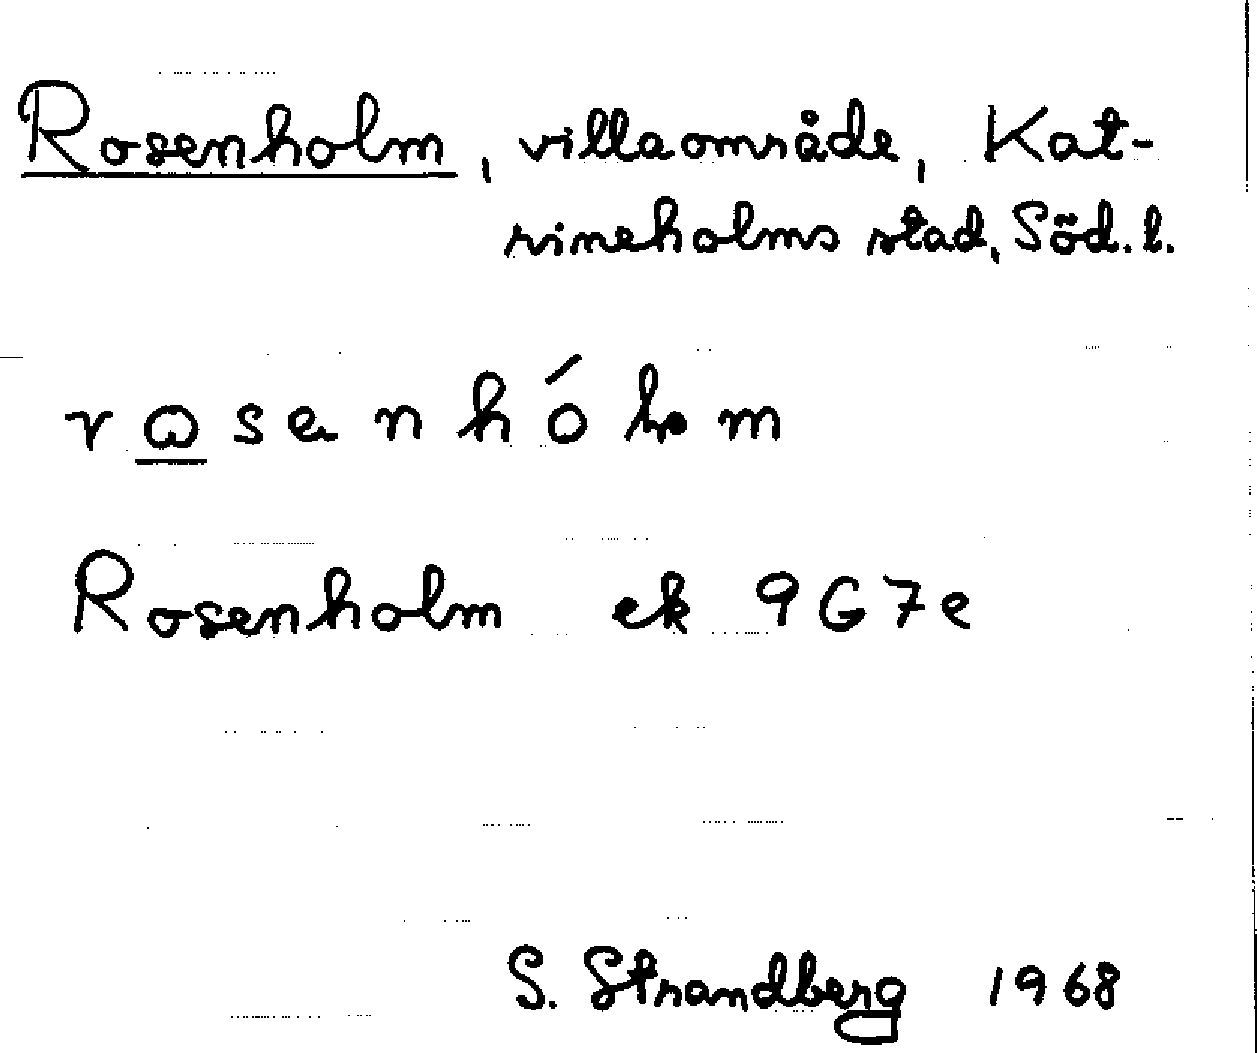 Rosenholm, villaområde, Kat-
rineholms stad, Söd. l.
rɷsenhólm
Rosenholm ek 9G7e
S. Strandberg 1968